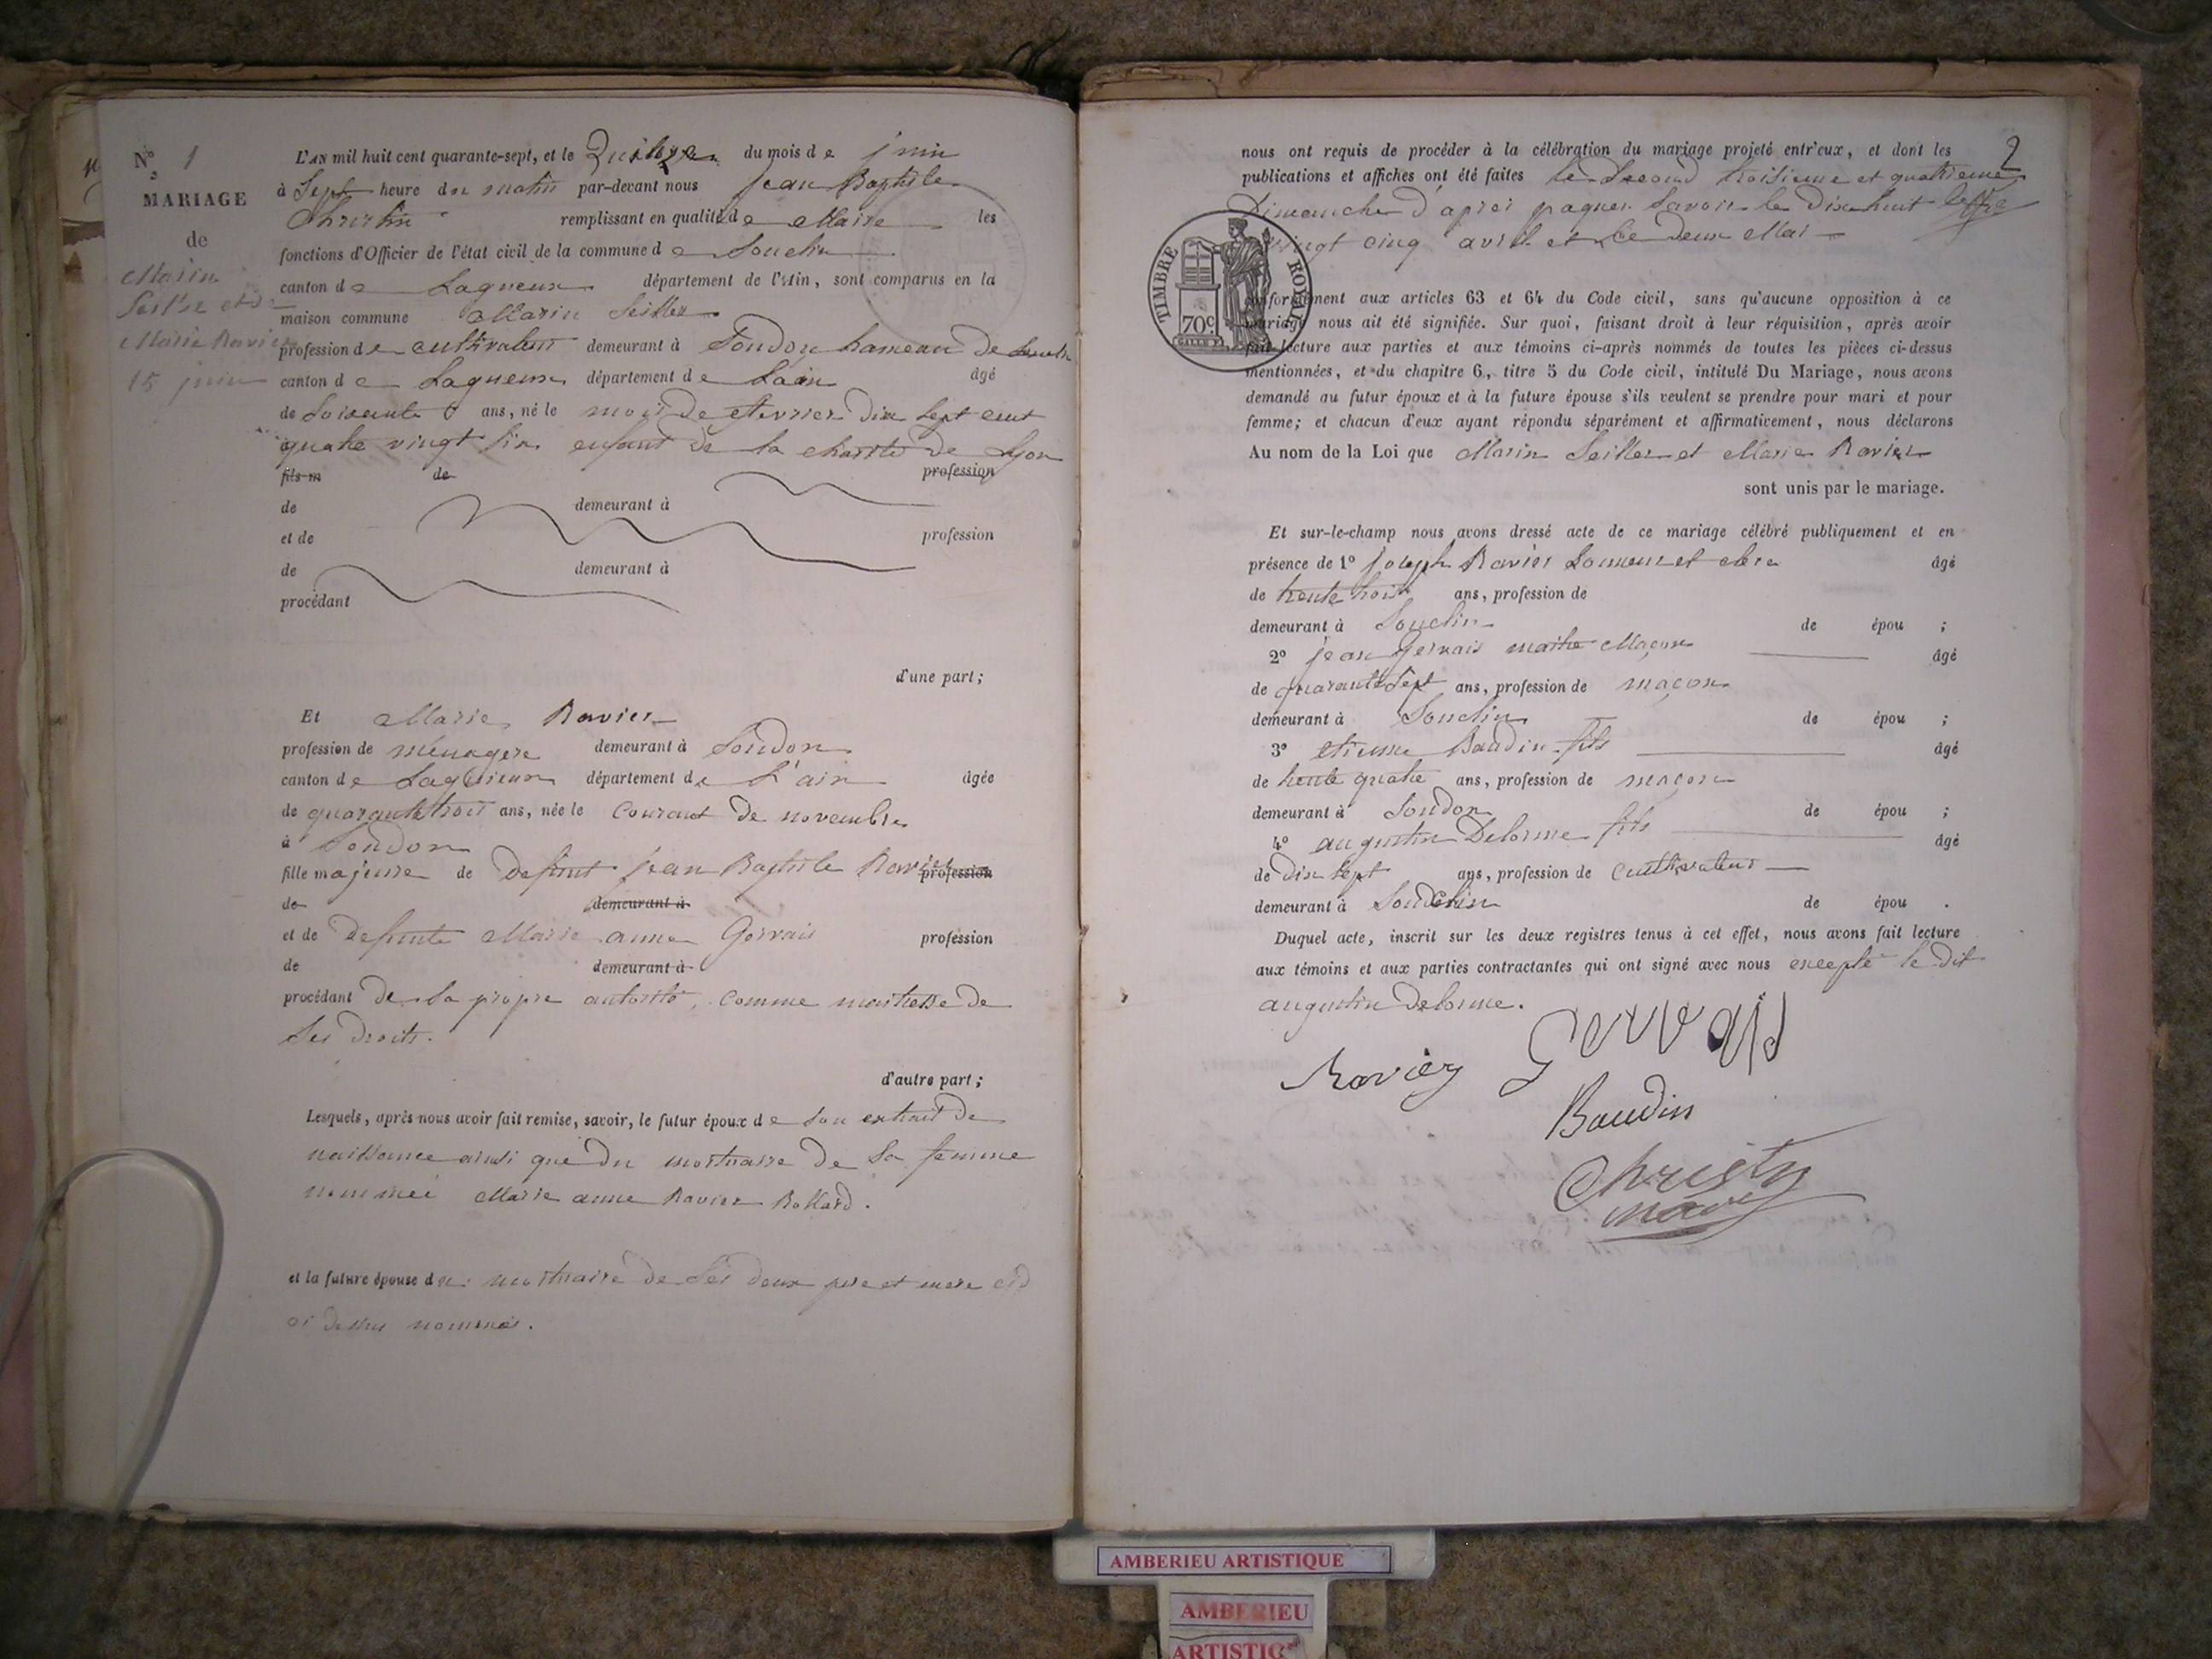 N° 1
MARIAGE
de
Marin
Seiller et de
Marie Ravier
15 juin
L'AN mil huit cent quarante-sept, et le Quinze du mois de juin
à Sept heure du matin par-devant nous Jean Baptiste
Christin remplissant en qualité de Maire les
fonctions d'Officier de l'état civil de la commune de Souclin
canton de Lagneux département de l'Ain, sont comparus en la
maison commune Marin Seiller
profession de cultivateur demeurant à Soudon hameau de Souclin
canton de Lagneux département de Lain âgé
de Soixante ans, né le mois de fevrier dix sept cent
quatre vingt six enfant de la charité de Lyon
fils m de profession
de demeurant à
et de profession
de demeurant à
procédant
d'une part;
Et Marie Ravier
profession de ménagere demeurant à Soudon
canton de Lagnieux département de L'ain âgée
de quarante trois ans, née le Courant de novembre
à Soudon
fille majeure de defunt jean Baptiste Ravier profession
de demeurant à
et de defunte Marie anne Gervais profession
de demeurant à
procédant de Sa propre autorité, comme maitresse de
Ses Droits.
d'autre part;
Lesquels, après nous avoir fait remise, savoir, le futur époux de Son extrait de
naissance ainsi que du mortuaire de Sa femme
nommée Marie anne Ravier Rollard.
et la future épouse du mortuaire de Ses deux pere et mere
ci dessus nommés.
2
nous ont requis de procéder à la célébration du mariage projeté entr'eux, et dont les
publications et affiches ont été faites le Second troisieme et quatrieme
Dimanche d'aprés paques Savoir le Dix huit
vingt cinq avril et le deux Mai
TIMBRE ROYAL
70c
conformément aux articles 63 et 64 du Code civil, sans qu'aucune opposition à ce
mariage nous ait été signifiée. Sur quoi, faisant droit à leur réquisition, après avoir
fait lecture aux parties et aux témoins ci-après nommés de toutes les pièces ci-dessus
mentionnées, et du chapitre 6, titre 5 du Code civil, intitulé Du Mariage, nous avons
demandé au futur époux et à la future épouse s'ils veulent se prendre pour mari et pour
femme; et chacun d'eux ayant répondu séparément et affirmativement, nous déclarons
Au nom de la Loi que Marin Seiller et Marie Ravier
sont unis par le mariage.
Et sur-le-champ nous avons dressé acte de ce mariage célébré publiquement et en
présence de 1° Joseph Ravier âgé
de trente trois ans, profession de
demeurant à Souclin de épou ;
2° jean Gervais maitre Maçon âgé
de quarante Sept ans, profession de maçon
demeurant à Souclin de épou ;
3° etienne Baudin fils âgé
de trente quatre ans, profession de maçon
demeurant à Soudon de épou ;
4° augustin Delorme fils âgé
de Dix Sept ans, profession de Cultivateur
demeurant à Souclin de épou .
Duquel acte, inscrit sur les deux registres tenus à cet effet, nous avons fait lecture
aux témoins et aux parties contractantes qui ont signé avec nous excepté le Dit
augustin Delorme.
Ravier Gervais
Baudin
Christin
maire
AMBERIEU ARTISTIQUE
AMBERIEU
ARTISTIQ